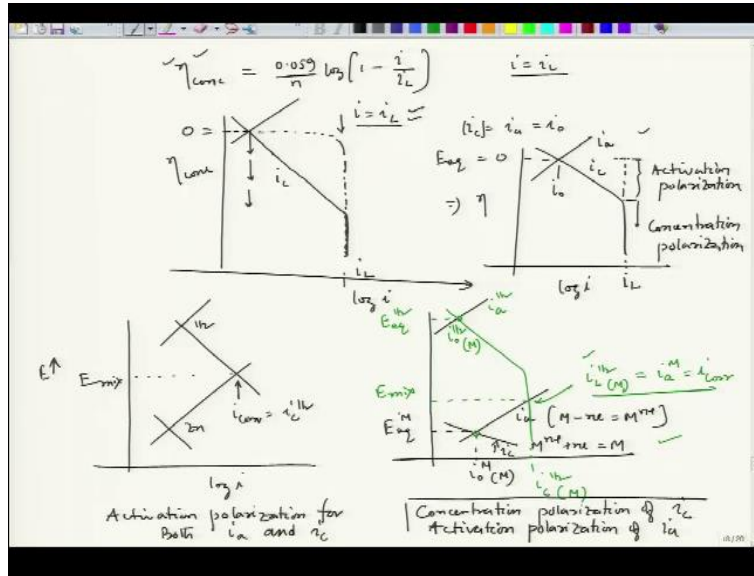 η_conc = 0.059/n log(1 - i/i_L)
i = i_L
0 =
η_conc
i = i_L
i_c
i_L
log i
|i_c| = i_a = i_0
E_eq = 0
⇒ η
i_a
i_c
i_0
Activation
polarization
Concentration
polarization
log i
i_L
E↑
E_mix
H2
Zn
i_corr = i_c^H2
log i
Activation polarization for
Both i_a and i_c
E_eq^H2
i_a^H2
i_0^H2 (M)
E_mix
i_L^H2 (M) = i_a^M = i_corr
E_eq^M
i_a [M - ne = M^n+]
i_c
M^n+ + ne = M
i_0^M (M)
i_c^H2 (M)
Concentration polarization of i_c
Activation polarization of i_a